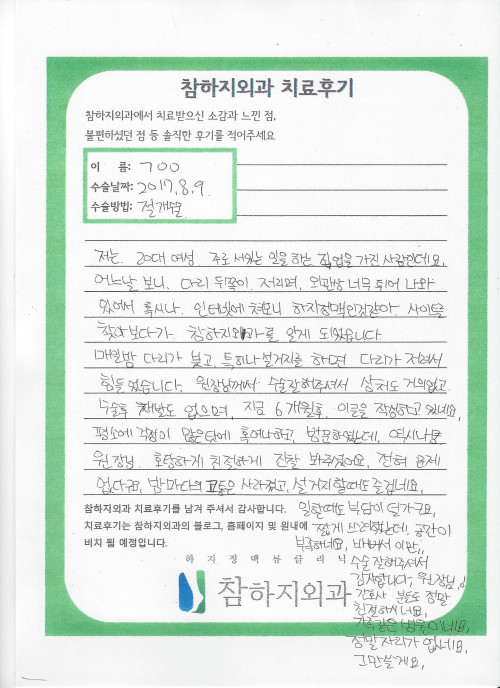 참하지외과 치료후기
참하지외과에서 치료받으신 소감과 느낀 점,
불편하셨던 점 등 솔직한 후기를 적어주세요
이 름: ㄱOO.
수술날짜: 2017.8.9.
수술방법: 절개술
저는. 20대 여성 주로 서있는 일을 하는 직업을 가진 사람인데요,
어느날 보니. 다리 뒤쪽이. 저리며, 외관상 너무 튀어 나와
있어서 혹시나. 인터넷에 쳐보니 하지정맥인것같아. 사이트를
찾아보다가. 참하지외과를 알게 되었습니다
매일밤 다리가 붓고, 특히나 설거지를 하면 다리가 저려서
힘들었습니다. 원장님께서 수술잘해주셔서 상처도 거의없고.
수술후 재발도 없으며, 지금 6개월후, 이글을 작성하고 있네요,
평소에 걱정이 많은탓에 혹여나하고, 방문하였는데, 역시나
원장님. 호탕하게 친절하게 진찰 봐주셨어요, 전혀 문제
없다구요, 밤마다의 고통은 사라졌고, 설거지할때도 즐겁네요,
참하지외과 치료후기를 남겨 주셔서 감사합니다. 일할때도 부담이 덜가구요,
치료후기는 참하지외과의 블로그, 홈페이지 및 원내에 짧게 쓰려했는데, 공간이
비치 될 예정입니다. 부족하네요, 바빠서 이만,,
하 지 정 맥 류 클 리 닉 수술 잘해주셔서
참하지외과 감사합니다, 원장님,,
간호사 분들도 정말
친절하시네요,
가족같은 병원이네요,
정말 자리가 없네요,
그만쓸게요,